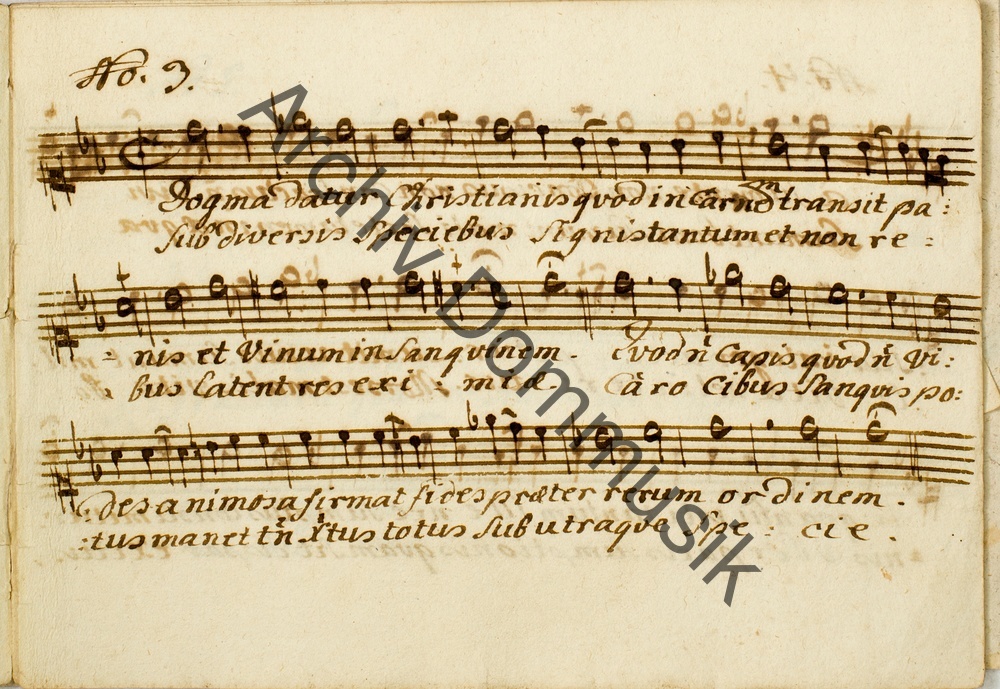 No. 3.
Dogma datur Christianis quod in Carnẽ transit pa:
Sub diversis Speciebus Signis tantum et non re =
= nis et Vinum in Sanquinem. Quod ñ Capis quod ñ vi:
: bus latent res exi: miæ. Caro Cibus Sanquis po:
: des animosa firmat fides præter rerum ordinem.
: tus manet tñ Xtus totus Sub utraque Spe: cie.
Archiv Dommusik